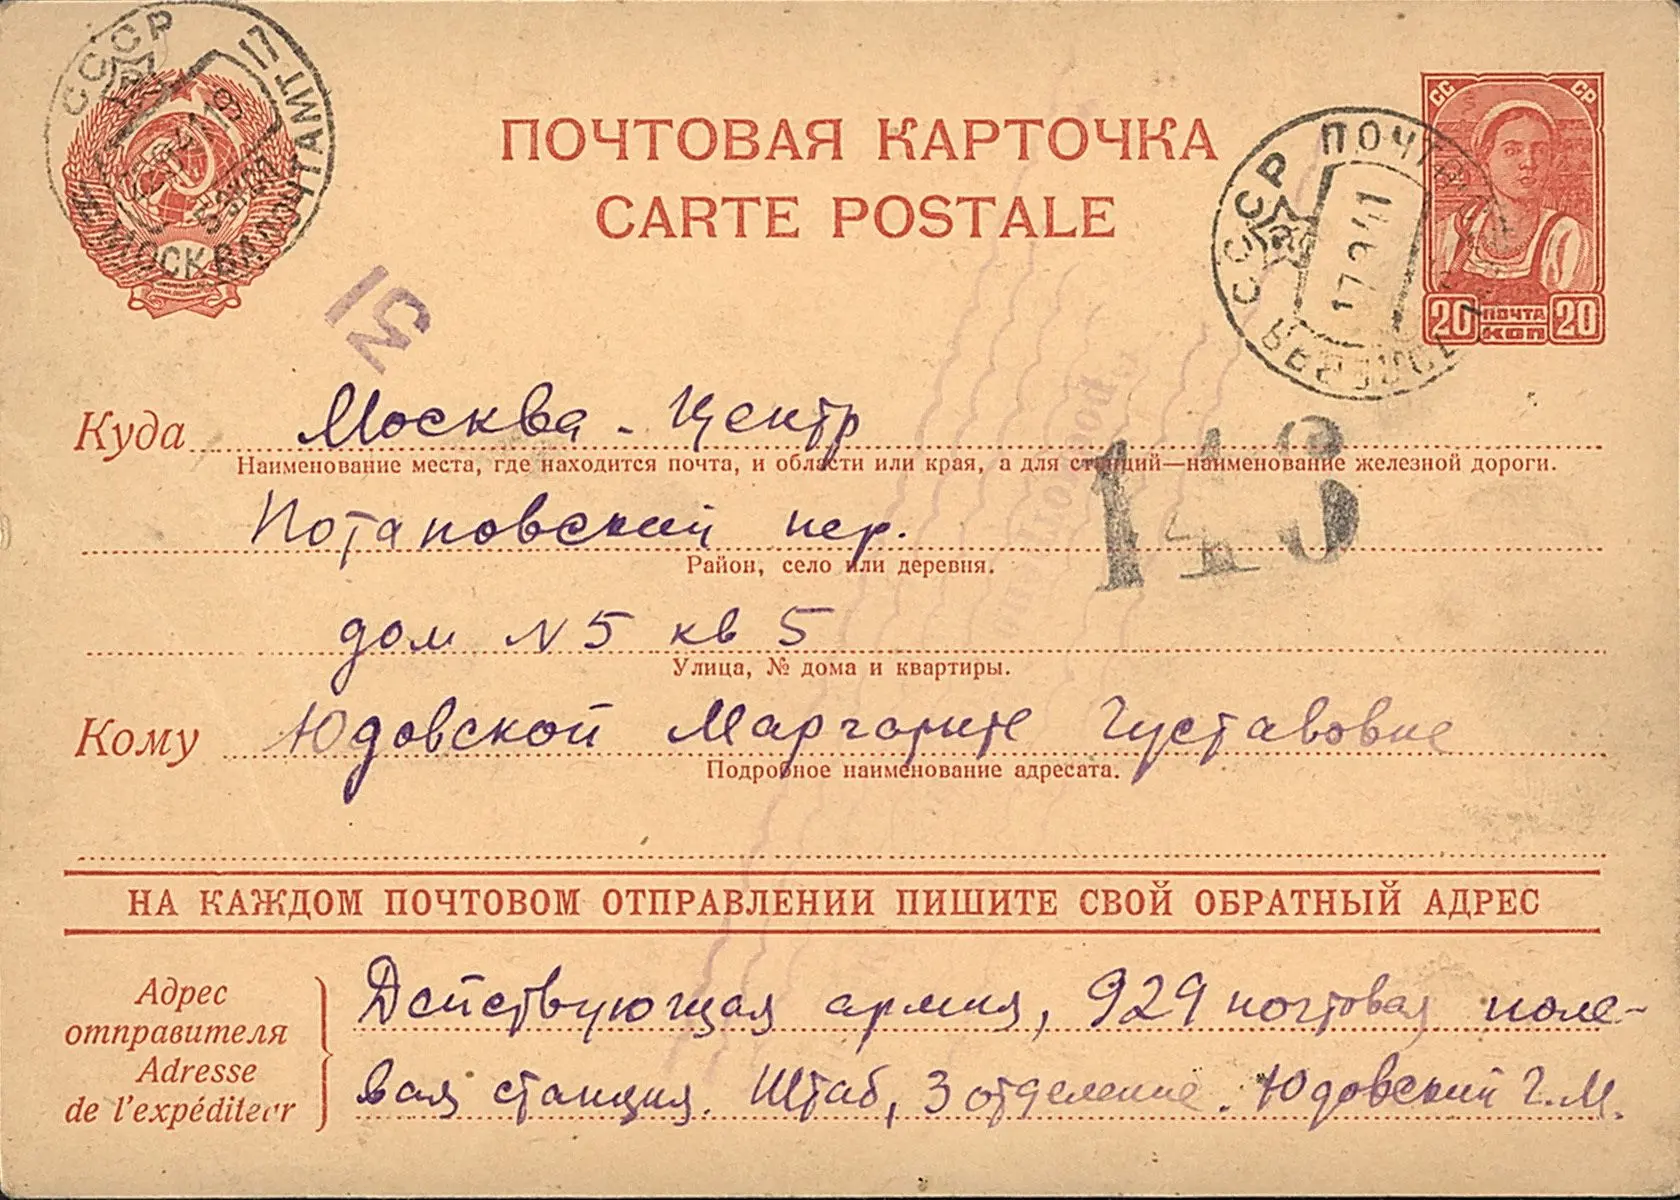 СССР
17. ПТМТ
МОСКВА ПОЧТАМТ
ПОЧТОВАЯ КАРТОЧКА
CARTE POSTALE
СССР
17 9 41
СС СР
20 ПОЧТА КОП 20
Куда Москва - Центр
Наименование места, где находится почта, и области или края, а для станций—наименование железной дороги.
143
Потаповский пер.
Район, село или деревня.
дом N 5 кв 5
Улица, № дома и квартиры.
Кому Юдовской Маргарите Густавовне
Подробное наименование адресата.
НА КАЖДОМ ПОЧТОВОМ ОТПРАВЛЕНИИ ПИШИТЕ СВОЙ ОБРАТНЫЙ АДРЕС
Адрес
отправителя
Adresse
de l'expéditeur
Действующая армия, 929 почтовая поле-
вая станция. Штаб, 3 отделение. Юдовский Г.М.